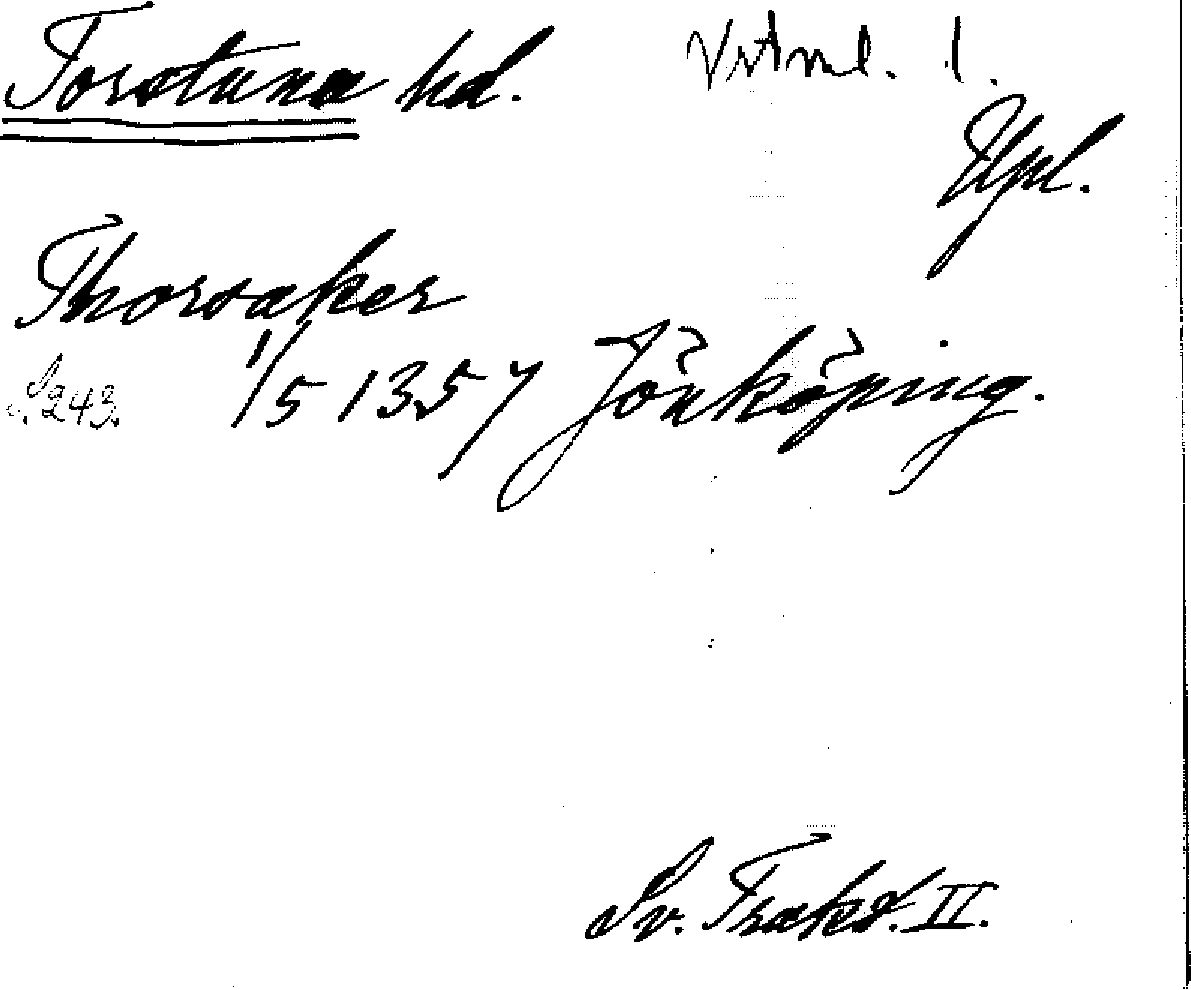 Torstuna hd. Vstml. l.
Upl.
Thorsaker
S. 243. 1/5 1357 Jönköping.
Sv. Trakt. II.